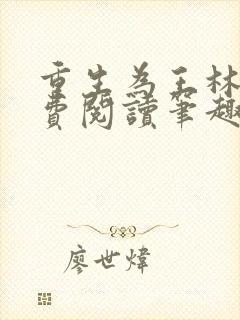 重生為王林
費閱讀筆趣
廖世煒